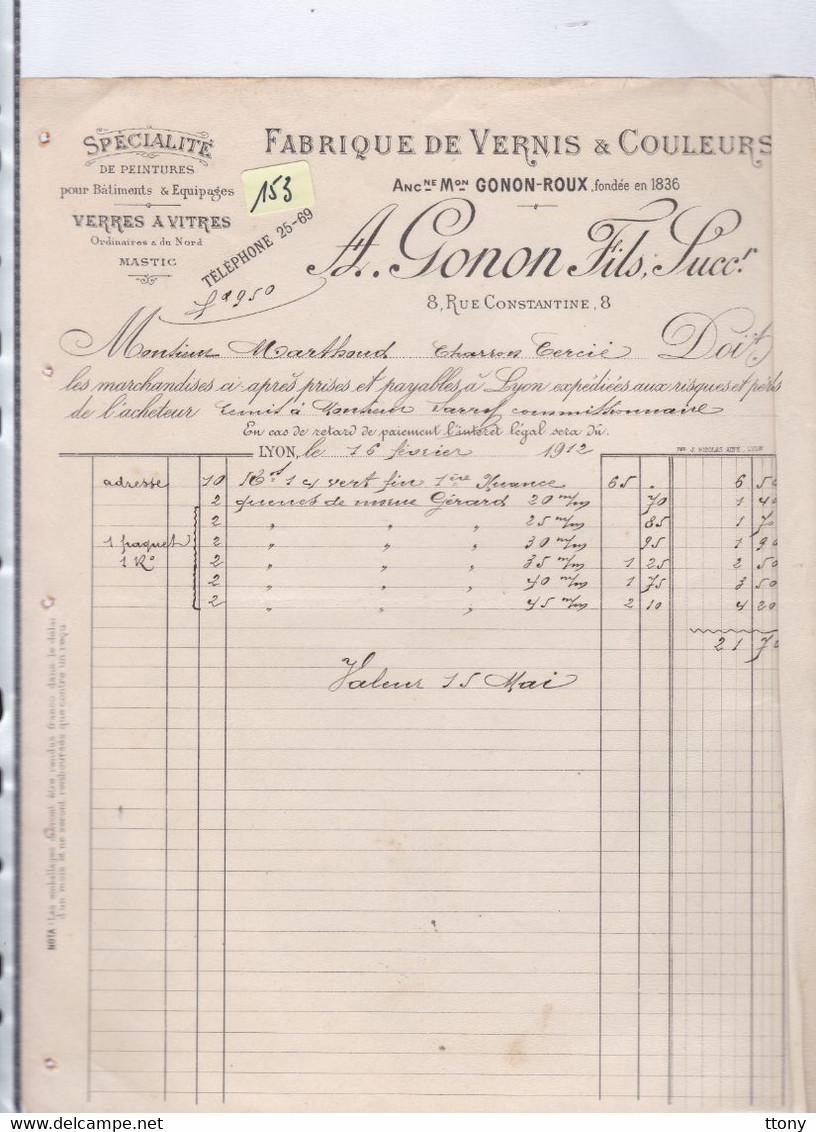 SPÉCIALITÉ
DE PEINTURES
pour Bâtiments & Equipages
VERRES A VITRES
Ordinaires & du Nord
MASTIC
153
TÉLÉPHONE 25-69
FABRIQUE DE VERNIS & COULEURS
ANC.NE MON GONON-ROUX, fondée en 1836
A. Gonon Fils, Succ.r
8, RUE CONSTANTINE, 8
Monsieur Marthoud Charron Doit
les marchandises ci-après prises et payables à Lyon expédiées aux risques et périls
de l'acheteur Remis à Monsieur commissionnaire
En cas de retard de paiement l'intérêt légal sera dû.
LYON, le 16 février 1912
adresse 10 vert fin 1ère Nuance 65 . 6 50
2 Gérard 20 m/m 70 1 40
2 " " " 25 m/m 85 1 70
1 paquet 2 " " " 30 m/m 95 1 90
1 Ko 2 " " " 35 m/m 1 25 2 50
2 " " " 40 m/m 1 75 3 50
2 " " " 45 m/m 2 10 4 20
21 70
Valeur 15 Mai
NOTA: Les emballages devront être rendus franco dans le délai
d'un mois et ne seront remboursés que contre un reçu
ttony